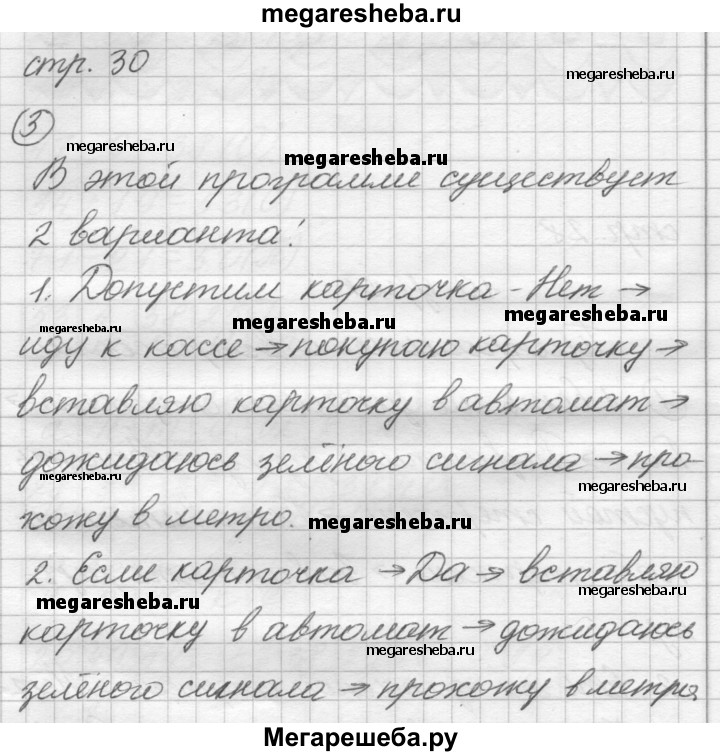 megaresheba.ru
стр. 30
megaresheba.ru
3
megaresheba.ru
megaresheba.ru
В этой программе существует
2 варианта:
1. Допустим карточка - Нет →
megaresheba.ru
megaresheba.ru
megaresheba.ru
иду к кассе → покупаю карточку →
вставляю карточку в автомат →
дожидаюсь зелёного сигнала → про-
megaresheba.ru
megaresheba.ru
хожу в метро.
megaresheba.ru
2. Если карточка → Да → вставляю
megaresheba.ru
megaresheba.ru
карточку в автомат → дожидаюсь
megaresheba.ru
зелёного сигнала → прохожу в метро
Мегарешеба.ру